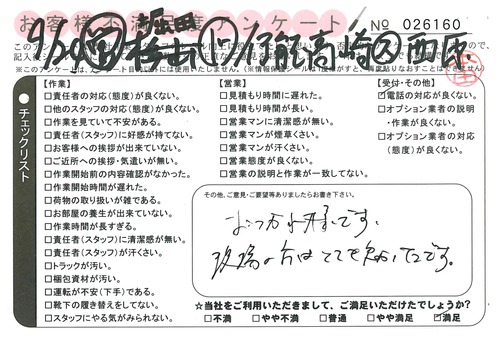 お客様不満足度アンケート
No 026160
チェックリスト
【作業】
□責任者の対応(態度)が良くない。
□他のスタッフの対応(態度)が良くない。
□作業を見ていて不安がある。
□責任者(スタッフ)に好感が持てない。
□お客様への挨拶が出来ていない。
□ご近所への挨拶・気遣いが無い。
□作業開始前の内容確認がなかった。
□作業開始時間が遅れた。
□荷物の取り扱いが雑である。
□お部屋の養生が出来ていない。
□作業時間が長すぎる。
□責任者(スタッフ)に清潔感が無い。
□責任者(スタッフ)が汗くさい。
□トラックが汚い。
□梱包資材が汚い。
□運転が不安(下手)である。
□靴下の履き替えをしてない。
□スタッフにやる気がみられない。
【営業】
□見積もり時間に遅れた。
□見積もり時間が長い。
□営業マンに清潔感が無い。
□営業マンが煙草くさい。
□営業マンが汗くさい。
□営業態度が良くない。
□営業の説明と作業が一致してない。
【受付・その他】
□電話の対応が良くない。
□オプション業者の説明
・作業が良くない。
□オプション業者の対応
(態度)が良くない。
その他、ご意見・ご要望等ありましたらお書き下さい。
おつかれ様です。
現場の方はとても良かったです。
☆当社をご利用いただきまして、ご満足いただけたでしょうか?
□不満 □やや不満 □普通 □やや満足 ☑満足